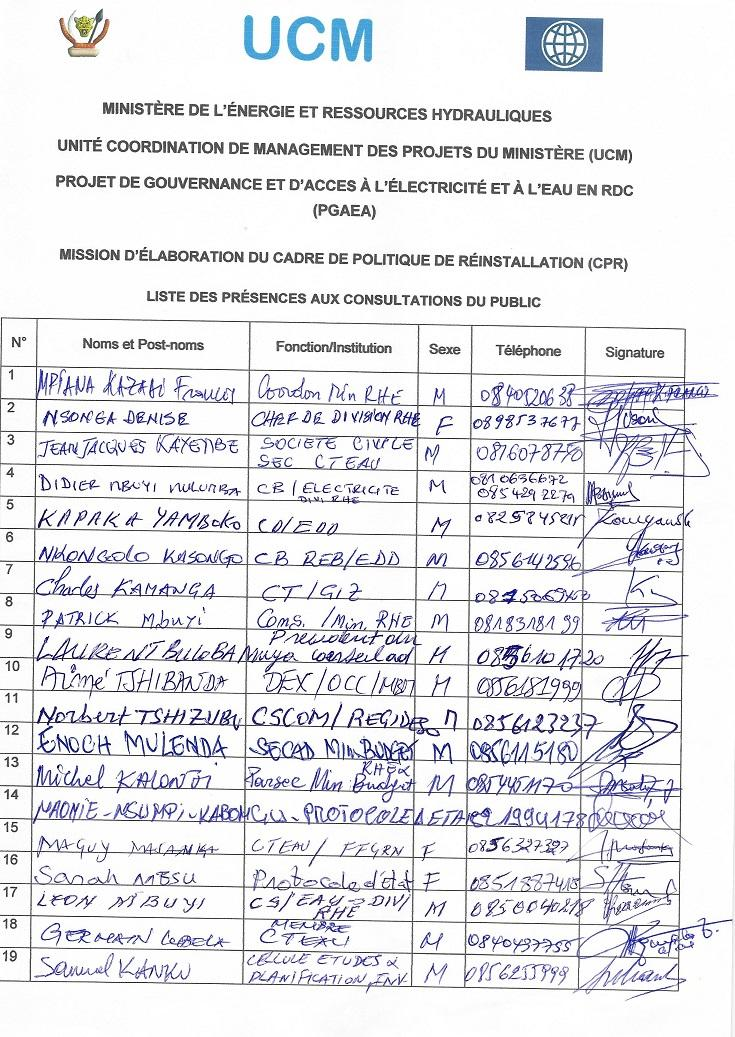 UCM
MINISTÈRE DE L'ÉNERGIE ET RESSOURCES HYDRAULIQUES
UNITÉ COORDINATION DE MANAGEMENT DES PROJETS DU MINISTÈRE (UCM)
PROJET DE GOUVERNANCE ET D'ACCES À L'ÉLECTRICITÉ ET À L'EAU EN RDC
(PGAEA)
MISSION D'ÉLABORATION DU CADRE DE POLITIQUE DE RÉINSTALLATION (CPR)
LISTE DES PRÉSENCES AUX CONSULTATIONS DU PUBLIC
N° Noms et Post-noms Fonction/Institution Sexe Téléphone Signature
1 MPIANA KAZADI Min RHE M
2 NSONGA DENISE CHEF DE DIVISION RHE F 0898537677
3 JEAN JACQUES KAYEMBE SOCIETE CIVILE
SEC CTEAU M
4 DIDIER MBUYI MULUMBA CB/ELECTRICITE
DIV RHE M 0810636672
0854292279
5 KAPAKA YAMBOKO CD/EDD M
6 NKONGOLO KASONGO CB REB/EDD M 0856142596
7 Charles KAMANGA CT/GIZ M
8 PATRICK Mbuyi Cons. /Min. RHE M 0818318199
9 LAURENT BULOBA President du
M 0856101720
10 Aimé TSHIBANDA DEX/OCC/MBM M 0856181999
11 Norbert TSHIZUBU CSCOM/REGIDESO M 0856123237
12 ENOCH MULENDA SECAD Min BUDGET M 0856115180
13 Michel KALONJI RHE &
Parsec Min Budget M 0854451170
14 NAOMIE-NSUMPI-KABONGU-PROTOCOLE D ETAT
15 MAGUY CTEAU/FFGRN F 0856327327
16 Sarah MESU Protocole d'état F 0851887418
17 LEON MBUYI CS/EAU-DIVI
RHE M
18 GERMAIN LUBELA MEMBRE
CTEAU M 0840497755
19 Samuel KANKU CELLULE ETUDES &
PLANIFICATION, INV M 0856255999